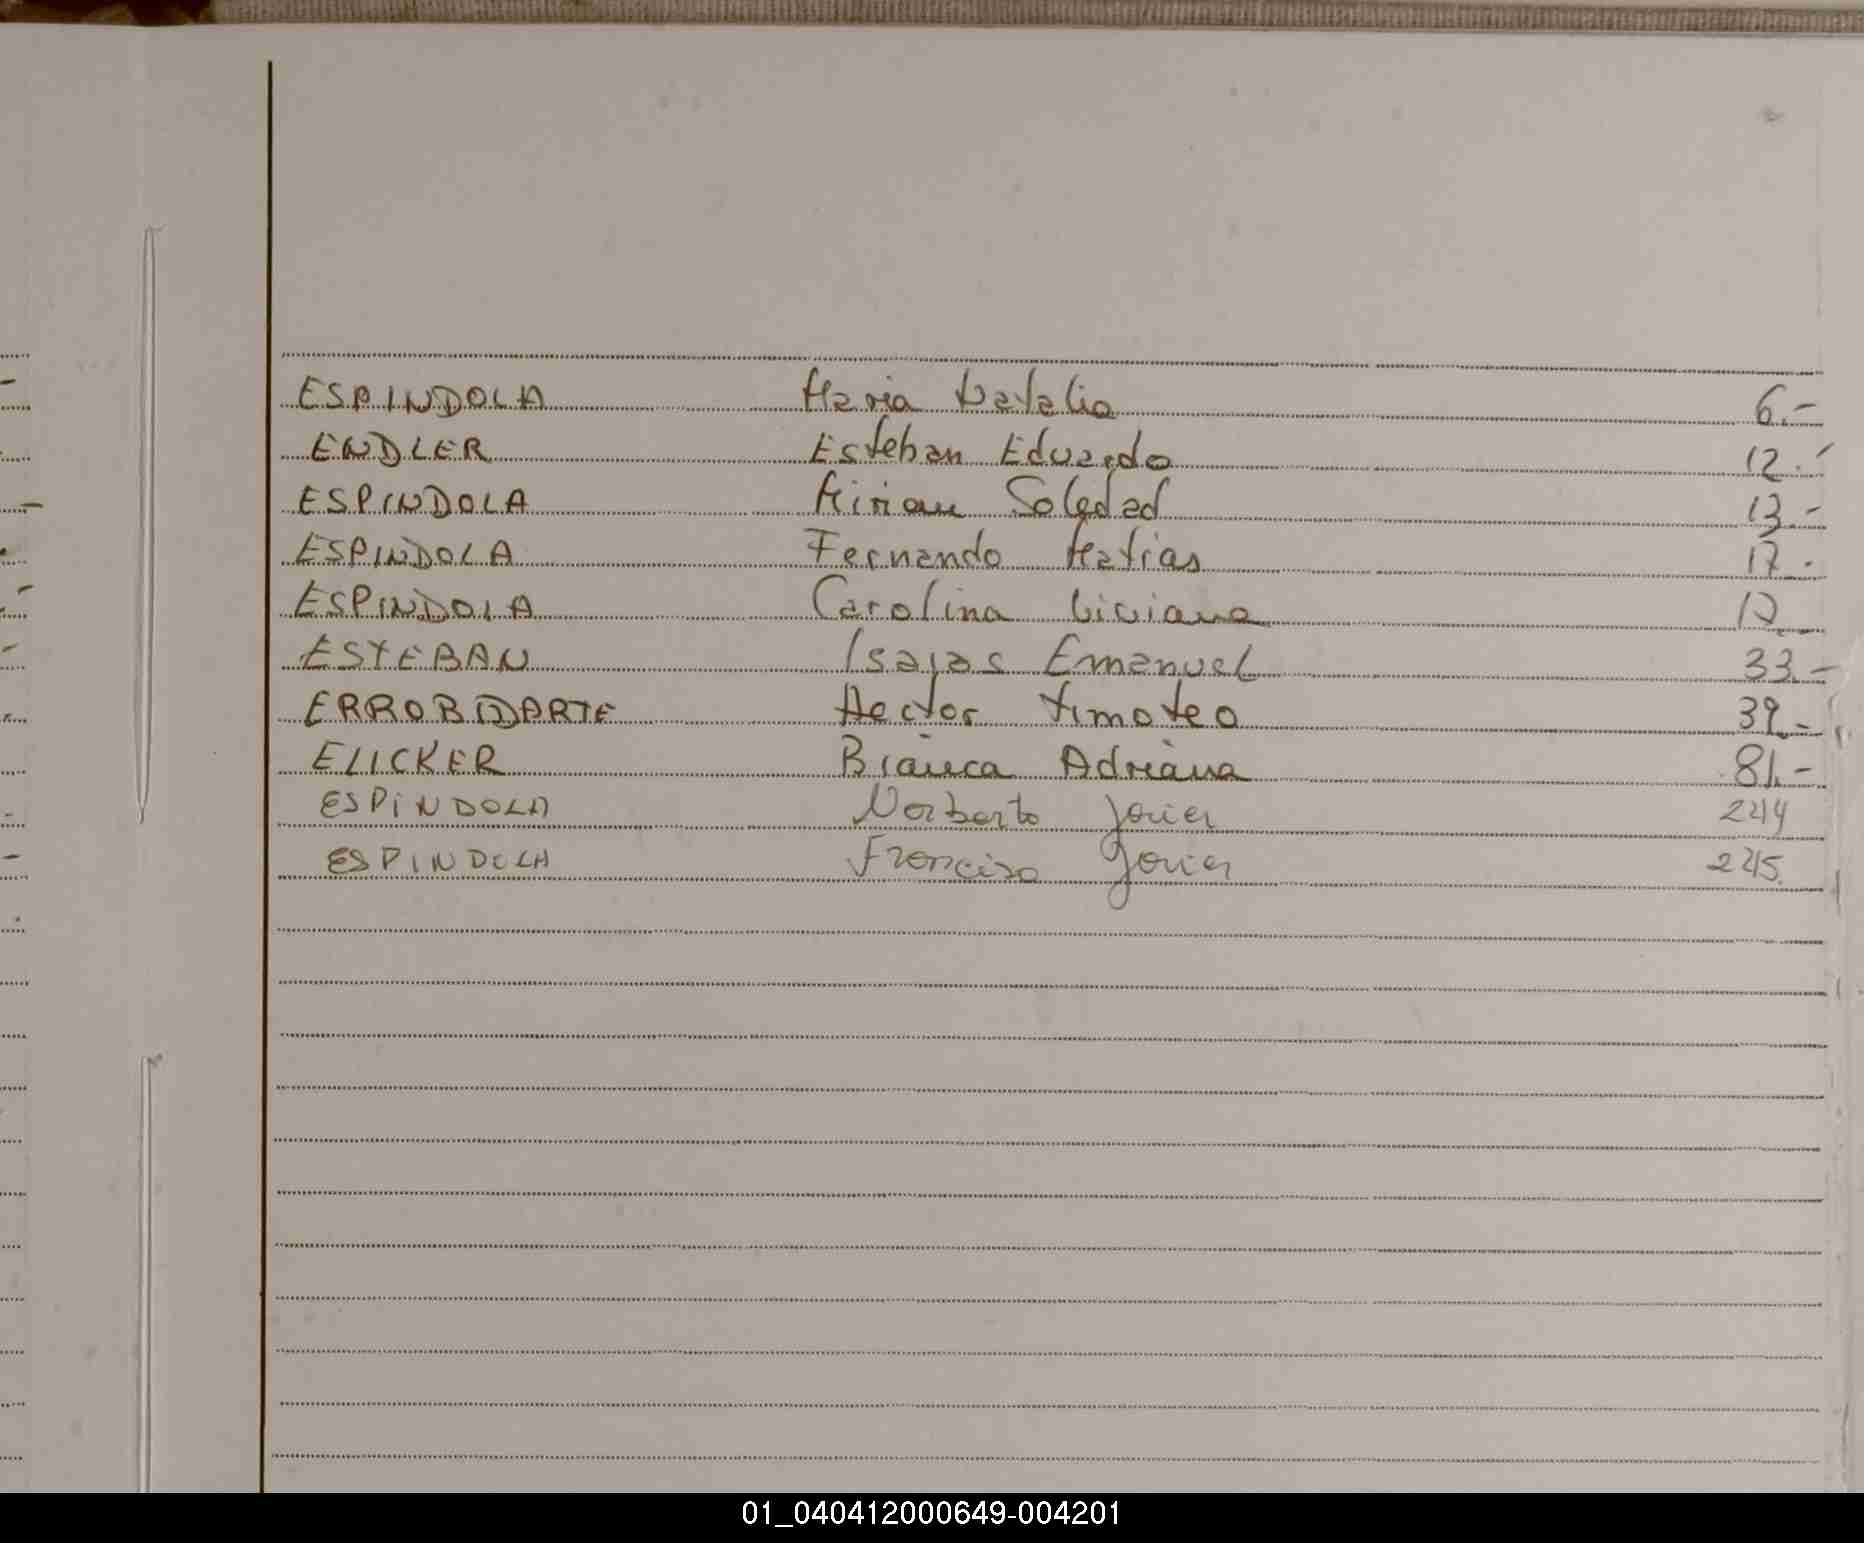 ESPINDOLA Maria Natalia 6.-
ENDLER Esteban Eduardo 12.-
ESPINDOLA Miriam Soledad 13.-
ESPINDOLA Fernando Matias 17.
ESPINDOLA Carolina Liviana
ESTEBAN Isaias Emanuel 33.-
ERROBIDARTE Hector Timoteo 39.-
ELICKER Bianca Adriana 81.-
ESPINDOLA Norberto Javier 244
ESPINDOLA Francisco Javier 245.
01_040412000649-004201